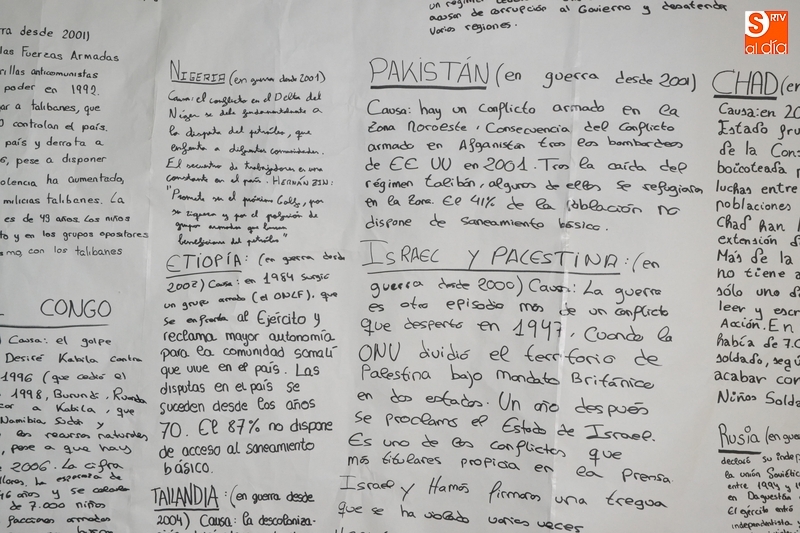 acusar de corrupción al Gobierno y desatender
varias regiones.
S RTV
al día
ra desde 2001)
las Fuerzas Armadas
rillas anticomunistas
poder en 1992.
ar a talibanes, que
o controlan el país.
país y derrota a
, pese a disponer
olencia ha aumentado,
milicias talibanes. La
es de 43 años. Los niños
to y en los grupos opositores
smo con los talibanes
CONGO
Causa: el golpe
Desiré Kabila contra
1996 (que cedió el
1998, Burundi, Ruanda
car a Kabila, que
Namibia, Sudán y
los recursos naturales
, pese a que hay
2006. La cifra
46 años y se calcula
de 7.000 niños
facciones armadas
NIGERIA (en guerra desde 2001)
Causa: el conflicto en el Delta del
Níger se debe fundamentalmente a
la disputa del petróleo, que
enfrenta a diferentes comunidades.
El secuestro de trabajadores es una
constante en el país. HERNÁN ZIN:
"Promete ser el próximo Golfo, por
su riqueza y por el polvorín de
grupos armados que buscan
beneficiarse del petróleo"
ETIOPÍA: (en guerra desde
2002) Causa: en 1984 surgió
un grupo armado (el ONLF), que
se enfrenta al Ejército y
reclama mayor autonomía
para la comunidad somalí
que vive en el país. Las
disputas en el país se
suceden desde los años
70. El 87% no dispone
de acceso al saneamiento
básico.
TAILANDIA: (en guerra desde
2004) Causa: la descoloniza-
PAKISTÁN (en guerra desde 2001)
Causa: hay un conflicto armado en la
zona Noroeste. Consecuencia del conflicto
armado en Afganistán tras los bombardeos
de EE UU en 2001. Tras la caída del
régimen talibán, algunos de ellos se refugiaron
en la zona. El 41% de la población no
dispone de saneamiento básico.
ISRAEL Y PALESTINA: (en
guerra desde 2000) Causa: La guerra
es otro episodio más de un conflicto
que despertó en 1947, cuando la
ONU dividió el territorio de
Palestina bajo mandato Británico
en dos estados. Un año después
se proclamó el Estado de Israel.
Es uno de los conflictos que
más titulares propicia en la prensa.
Israel y Hamás firmaron una tregua
que se ha violado varias veces
CHAD (en
Causa: en 20
Estado gru
de la Cons
boicoteada p
luchas entre
poblaciones
Chad han l
extensión d
Más de la
no tiene a
sólo uno d
leer y escr
Acción. En
había de 7.0
soldado, segú
acabar con
Niños Solda
RUSIA (en guer
declaró su indep
la unión Soviétic
entre 1994 y 19
en Daguestán
El ejército entró
independentista y